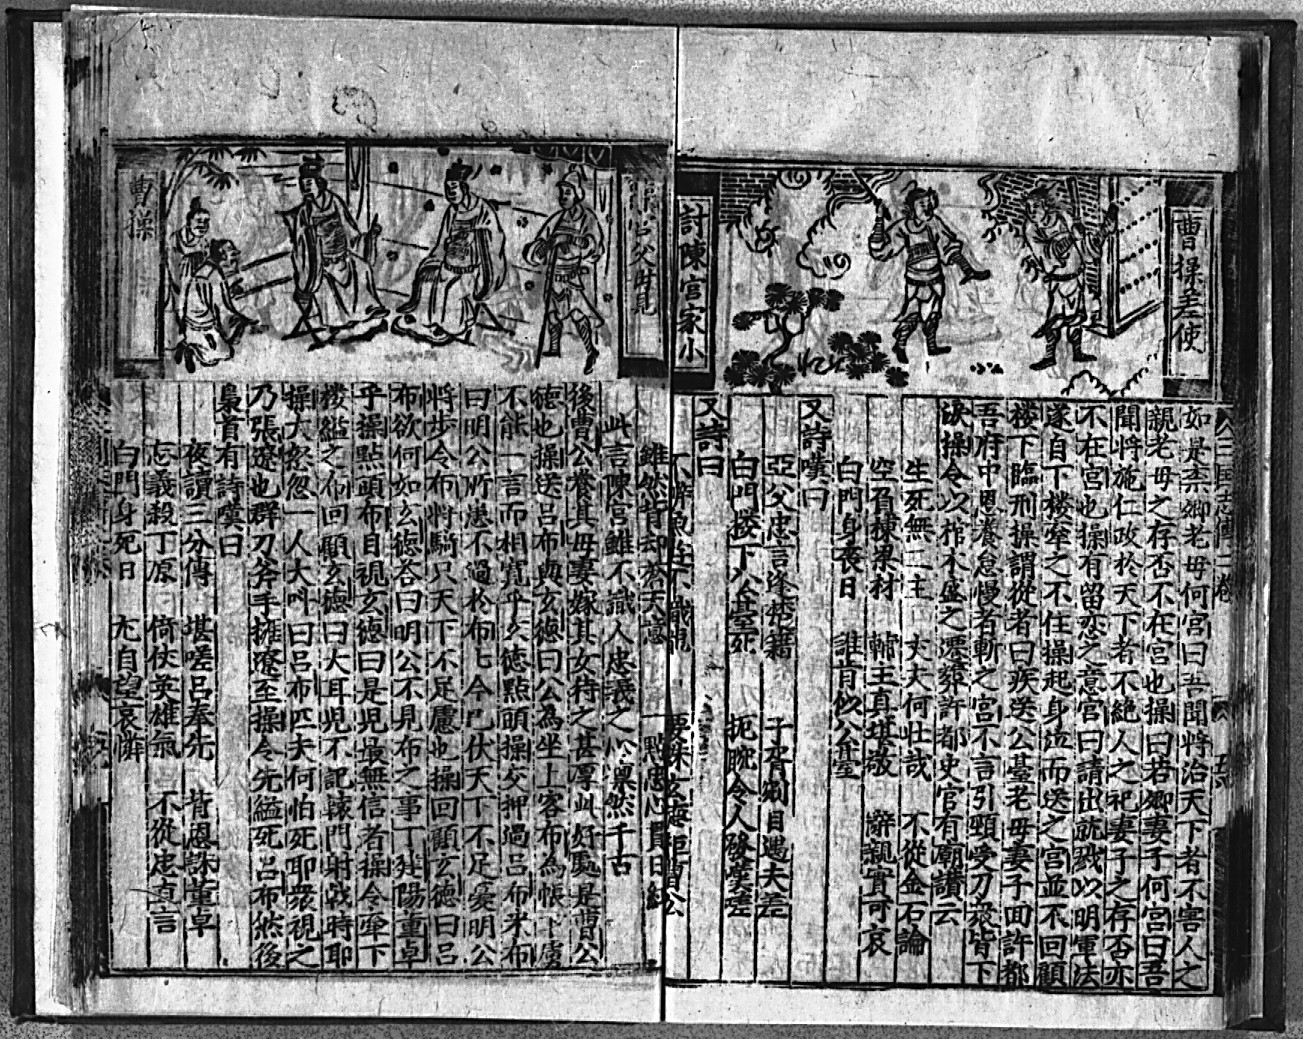 曹操差使
計陳宮家小
三國志傳二卷
如是柰卿老母何宮曰吾聞將治天下者不害人之
親老母之存否不在宮也操曰若卿妻子何宮曰吾
聞將施仁政於天下者不絕人之祀妻子之存否亦
不在宮也操有留恋之意宮曰請出就戮以明軍法
遂自下楼牽之不住操起身泣而送之宮並不回顧
楼下臨刑操謂從者曰疾送公臺老母妻子回許都
吾府中恩养怠慢者斬之宮不言引頸受刀衆皆下
淚操令以棺木盛之遷葬許都史官有廟讚云
生死無二主 丈夫何壯哉 不從金石論
空負棟梁材 輔主真堪敬 辭親實可哀
白門身丧日 誰肯似公臺
又詩嘆曰
亞父忠言逢楚籍 子胥剜目遇夫差
白門楼下公臺死 扼腕令人發嘆嗟
又詩曰
不辨魚
曹操
父
雖然背却
此言陳宮雖不識人忠義之心凛然千古
後曹公養其母妻嫁其女待之甚厚此好處是曹公
德也操送呂布與玄德曰公為坐上客布為帳下虜
不能一言而相寬乎玄德點頭操交押過呂布来布
曰明公所患不過於布七今已伏天下不足憂明公
將步令布將騎只天下不足慮也操回顧玄德曰呂
布欲何如玄德答曰明公不見布之事丁建陽董卓
乎操點頭布目視玄德曰是児最無信者操令牽下
楼縊之布回顧玄德曰大耳児不記轅門射戟時耶
操大怒忽一人大叫曰呂布匹夫何怕死耶衆視之
乃張遼也群刀斧手擁遼至操令先縊死呂布然後
梟首有詩嘆曰
夜讀三分傳 堪嗟呂奉先 背恩誅董卓
忘義殺丁原 倚仗英雄氣 不從忠直言
白門身死日 尢自望哀憐